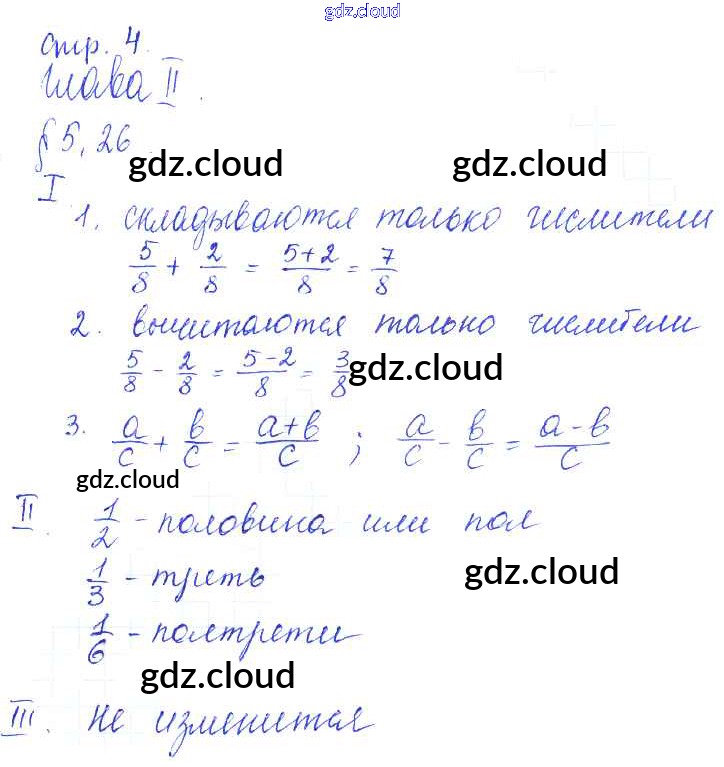 gdz.cloud
стр. 4.
Глава II.
§ 5, 26
gdz.cloud gdz.cloud
I
1. складываются только числители
5/8 + 2/8 = (5+2)/8 = 7/8
2. вычитаются только числители
5/8 - 2/8 = (5-2)/8 = 3/8
gdz.cloud
3. a/c + b/c = (a+b)/c ; a/c - b/c = (a-b)/c
gdz.cloud
II 1/2 - половина или пол
1/3 - треть
gdz.cloud
1/6 - полтрети
gdz.cloud
III. Не изменится